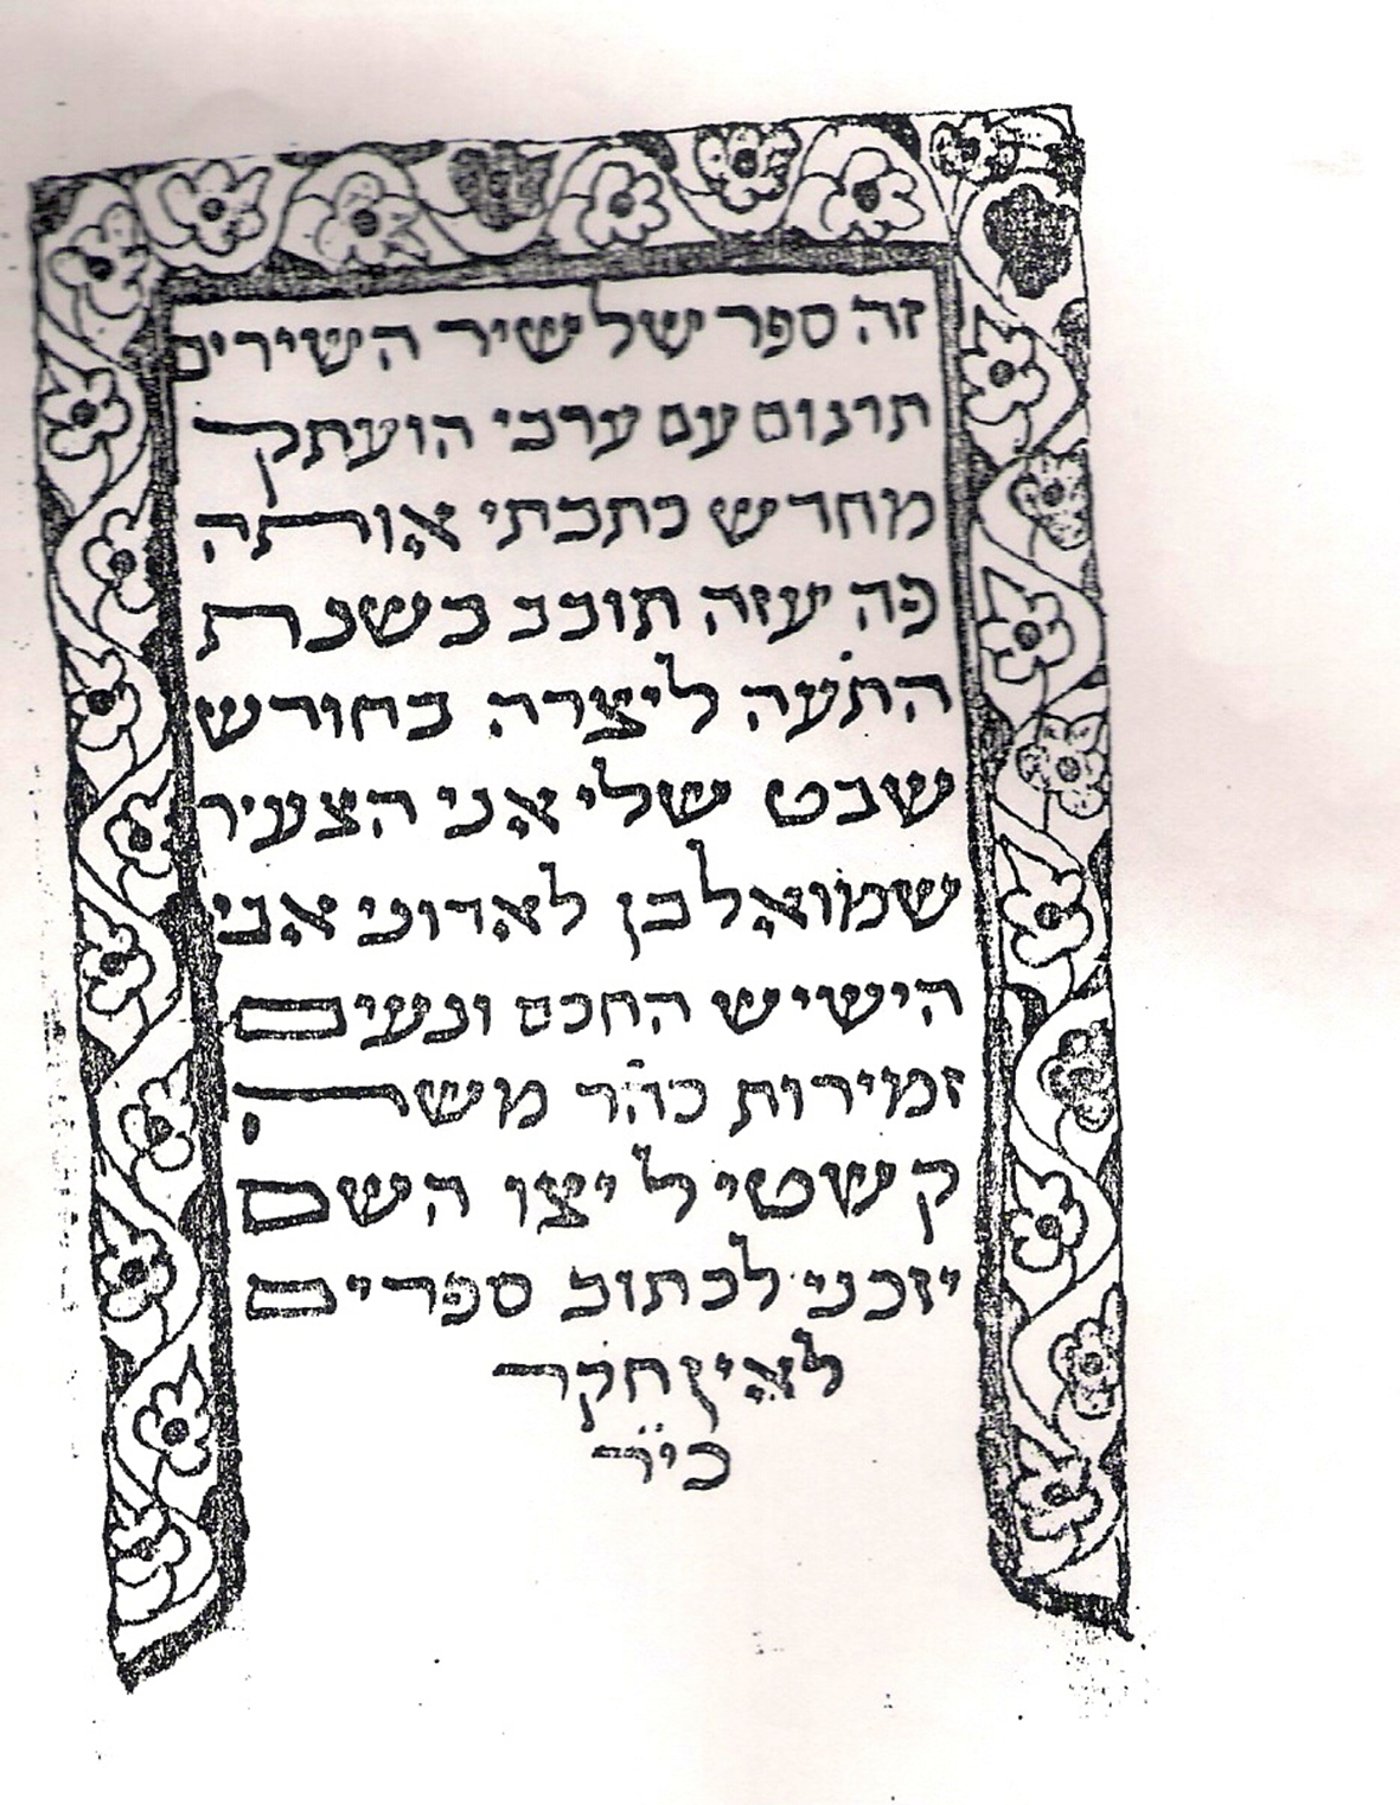 זה ספר של שיר השירים
תרגום עם ערבי הועתק
מחדש כתבתי אותה
פה יעזה תובב בשנת
התעה ליצרה בחורש
שבט שלי אני הצעיר
שמואל בן לאדוני אבי
הישיש החכם ונעים
זמירות כהר משה
קשטי ליצו השם
יזכני לכתוב ספרים
לאין חקר
כיר